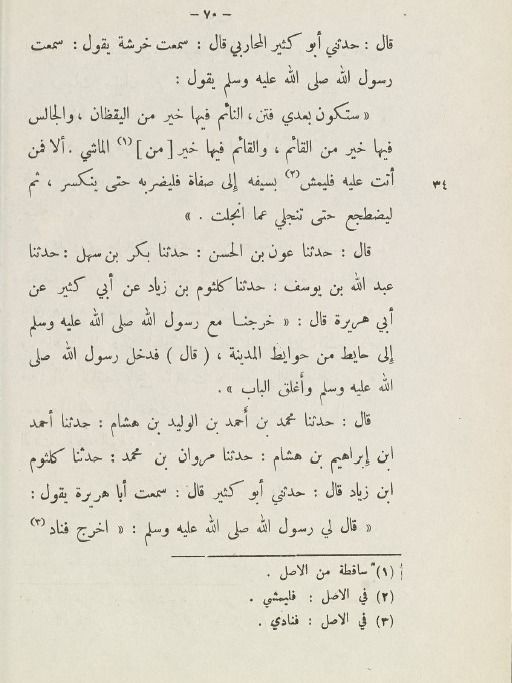 - ٧٠ -
قال : حدثني أبو كثير المحاربي قال : سمعت خرشة يقول : سمعت
رسول الله صلى الله عليه وسلم يقول :
« ستكون بعدي فتن ، النائم فيها خير من اليقظان ، والجالس
فيها خير من القائم ، والقائم فيها خير [ من ] (١) الماشي . ألا فمن
أتت عليه فليمش (٢) بسيفه إلى صفاة فليضربه حتى ينكسر ، ثم
٣٤
ليضطجع حتى تنجلي عما انجلت . »
قال : حدثنا عون بن الحسن : حدثنا بكر بن سهل : حدثنا
عبد الله بن يوسف : حدثنا كلثوم بن زياد عن أبي كثير عن
أبي هريرة قال : « خرجنا مع رسول الله صلى الله عليه وسلم
إلى حايط من حوايط المدينة ، ( قال ) فدخل رسول الله صلى
الله عليه وسلم وأغلق الباب » .
قال : حدثنا محمد بن أحمد بن الوليد بن هشام : حدثنا أحمد
ابن إبراهيم بن هشام : حدثنا مروان بن محمد : حدثنا كلثوم
ابن زياد قال : حدثني أبو كثير قال : سمعت أبا هريرة يقول :
« قال لي رسول الله صلى الله عليه وسلم : « اخرج فناد (٣)
(١) ساقطة من الاصل .
(٢) في الاصل : فليمشي .
(٣) في الاصل : فنادي .